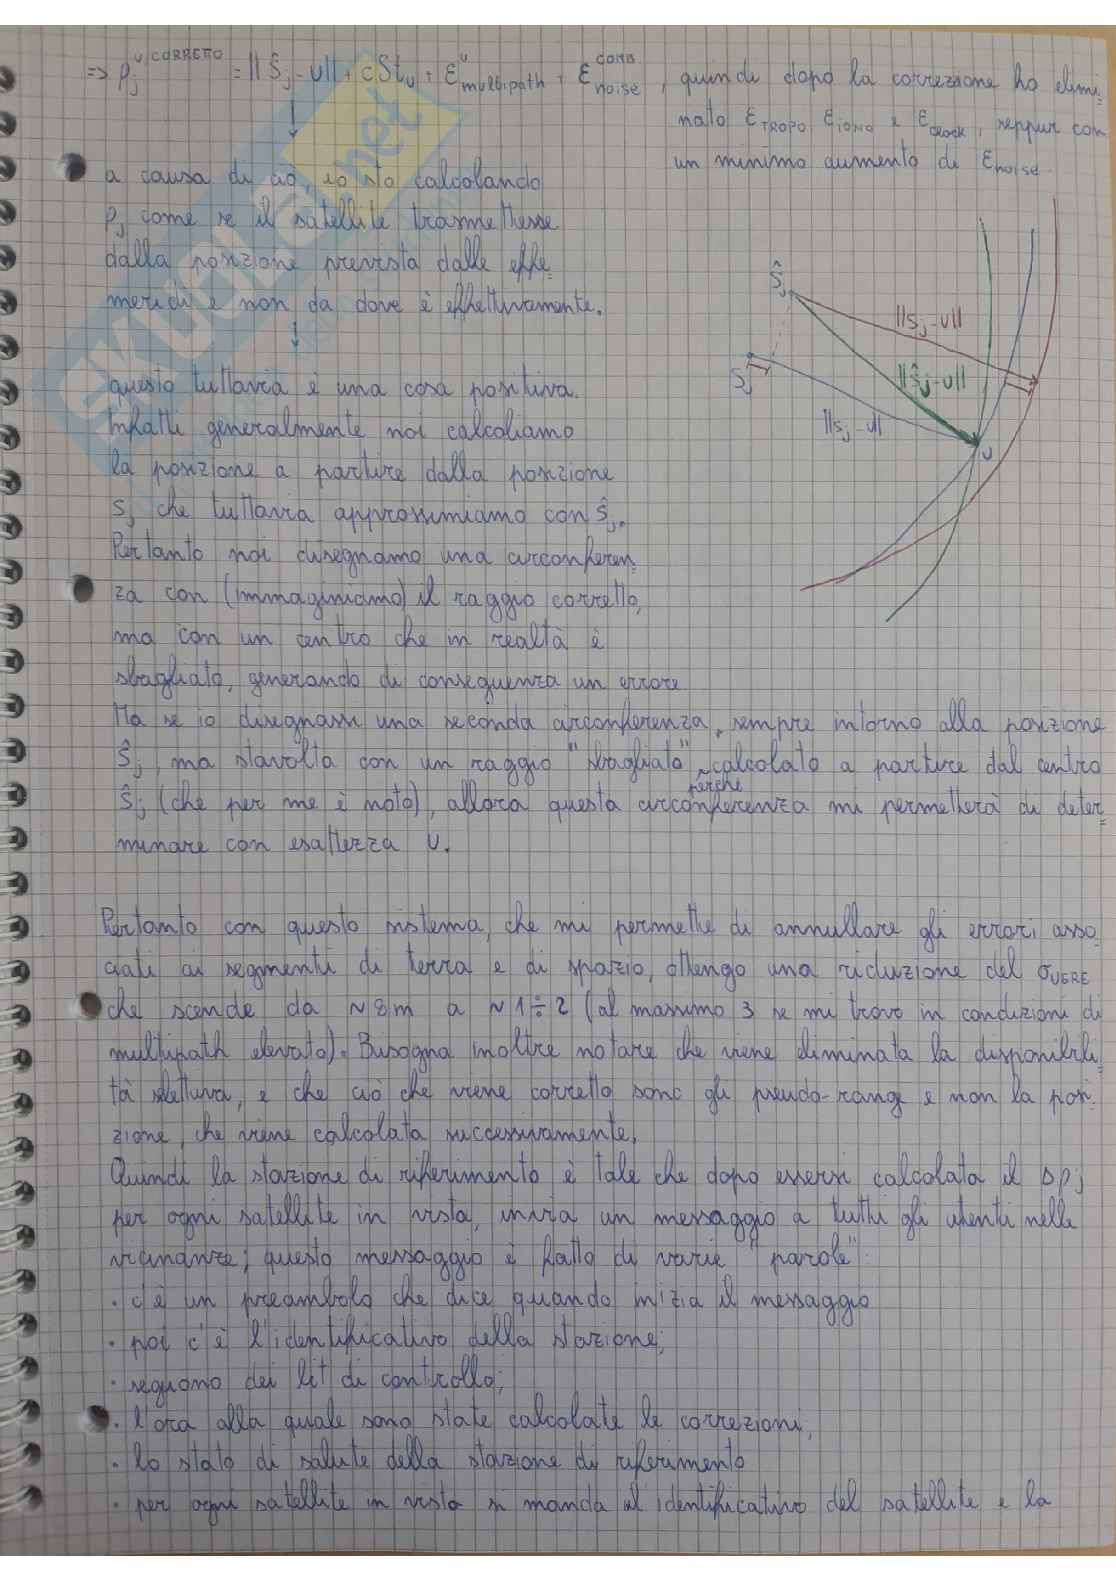 => ρ_j^{U CORRETTO} = ||ŝ_j - U|| + cδt_U + ε^U_{multipath} + ε^{COMB}_{noise}, quindi dopo la correzione ho elimi-
nato ε_{TROPO}, ε_{IONO} e ε_{clock}, seppur con
un minimo aumento di ε_{noise}.
a causa di ciò, io sto calcolando
ρ_j come se il satellite trasmettesse
dalla posizione prevista dalle effe-
meridi e non da dove è effettivamente.
questo tuttavia è una cosa positiva.
Infatti generalmente noi calcoliamo
la posizione a partire dalla posizione
s_j che tuttavia approssimiamo con ŝ_j.
Pertanto noi disegnamo una circonferen-
za con (immaginiamo) il raggio corretto,
ma con un centro che in realtà è
sbagliato, generando di conseguenza un errore.
ŝ_j
||s_j - U||
||ŝ_j - U||
s_j
||s_j - U||
U
Ma se io disegnassi una seconda circonferenza, sempre intorno alla posizione
ŝ_j, ma stavolta con un raggio "sbagliato" perché calcolato a partire dal centro
ŝ_j (che per me è noto), allora questa circonferenza mi permetterà di deter-
minare con esattezza U.
Pertanto con questo sistema, che mi permette di annullare gli errori asso-
ciati ai segmenti di terra e di spazio, ottengo una riduzione del σ_{UERE}
che scende da ~8m a ~1÷2 (al massimo 3 se mi trovo in condizioni di
multipath elevato). Bisogna inoltre notare che viene eliminata la disponibili-
tà selettiva, e che ciò che viene corretto sono gli pseudo-range e non la posi-
zione, che viene calcolata successivamente.
Quindi la stazione di riferimento è tale che dopo essersi calcolata il Δρ_j
per ogni satellite in vista, invia un messaggio a tutti gli utenti nelle
vicinanze; questo messaggio è fatto di varie "parole":
· c'è un preambolo che dice quando inizia il messaggio
· poi c'è l'identificativo della stazione;
· seguono dei bit di controllo;
· l'ora alla quale sono state calcolate le correzioni;
· lo stato di salute della stazione di riferimento
· per ogni satellite in vista si manda il identificativo del satellite e la
SKUOLA.net